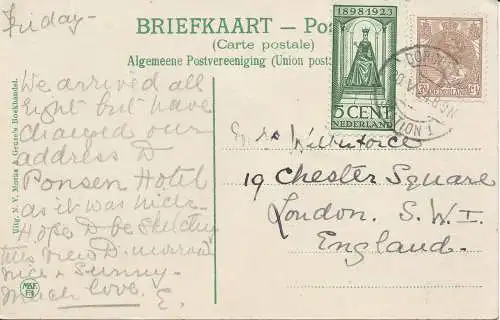 Friday -
We arrived all
right but have
changed our
address to
Ponsen Hotel
as it was nicer.
Hope to be sketching
this view
nice & sunny-
Much love. E.
BRIEFKAART — Pos
(Carte postale)
Algemeene Postvereeniging (Union post
Uitg. N. V. Morks & Geuze's Boekhandel.
1898-1923
5 CENT
NEDERLAND
DORDR
Mrs Wilberforce
19 Chester Square
London. S.W.I.
England.